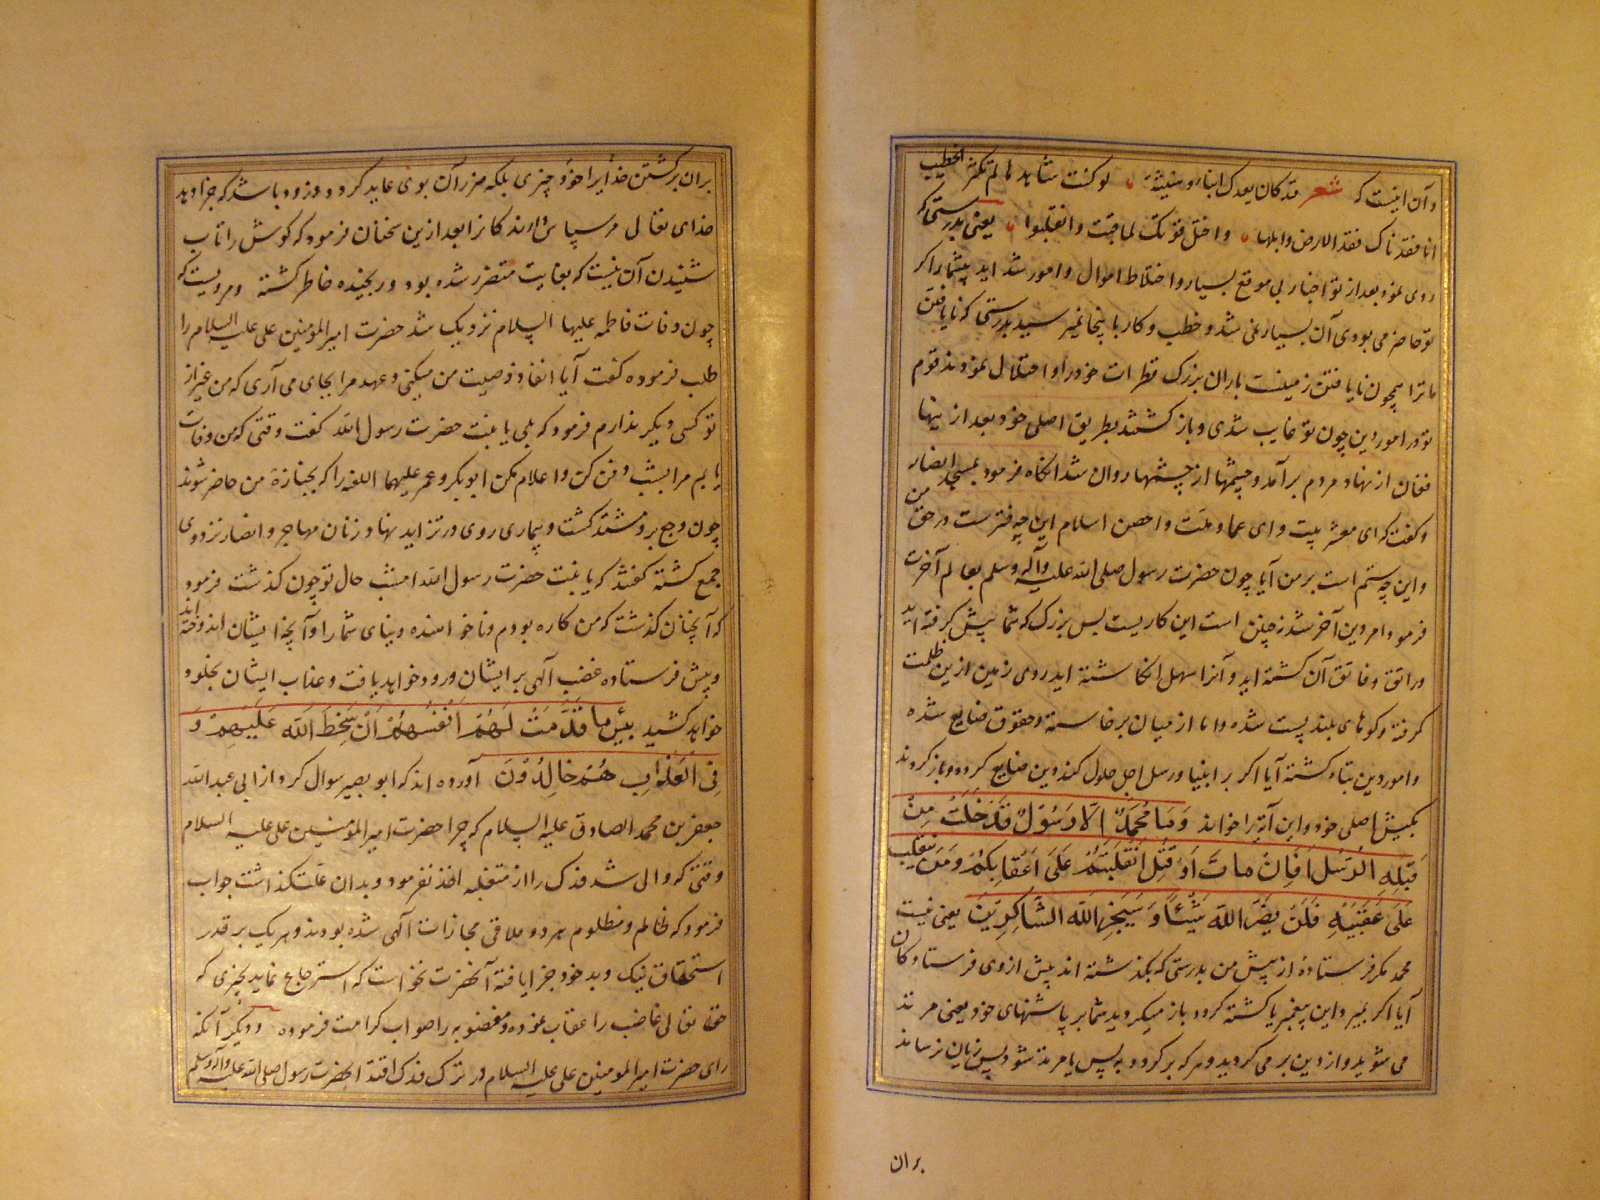 و آن اینست که شعر قد کان بعدک انباء و هنبثة لو کنت شاهدها لم تکثر الخطب
انا فقدناک فقد الارض وابلها واختل قومک لما غبت وانقلبوا یعنی بدرستی که
روی نمود بعد از تو اخبار بی موقع بسیار و اختلاط اموال و امور شداید پیشمار اگر
تو حاضر می بودی آن بسیار نمی شد و خطب و کار باینجا نمیرسید بدرستی که نایافتن
ما ترا همچون نایافتن زمینست باران بزرک قطرات خود را و اختلال نمودند قوم
تو در امور دین چون تو غایب شدی و باز کشتند بطریق اصلی خود بعد از ینها
فغان از نهاد مردم برآمد و چشمها از چشمها روان شد انکاه فرمود بمسجد انصار
و کفت که ای معشر و ای عماد ملت و احصن اسلام این چه فترست در حق من
و این چه ستم است بر من آیا چون حضرت رسول صلی الله علیه وآله وسلم بعالم آخرت
فرمود امر دین آخر شد زچنین است این کاریست بس بزرک که شما پیش کرفته اید
و راتق و فاتق آن کشته اید و آنرا سهل انکاشته اید روی زمین ازین ظلمت
کرفته و کوهای بلند پست شده و از میان برخاسته و حقوق ضایع شده
و امور دین تباه کشته آیا اکر بر انبیا و رسل اجل حلول کند دین ضایع کردد و باز کردند
بکیش اصلی خود و این آیه را خواند وَمَا مُحَمَّدٌ اِلَّا رَسُوْلٌ قَدْ خَلَتْ مِنْ
قَبْلِهِ الرُّسُلُ اَفَاِنْ مَاتَ اَوْ قُتِلَ انْقَلَبْتُمْ عَلَى اَعْقَابِكُمْ وَمَنْ يَنْقَلِبْ
عَلَى عَقِبَيْهِ فَلَنْ يَضُرَّ اللهَ شَيْئًا وَسَيَجْزِي اللهُ الشَّاكِرِيْنَ یعنی نیست
محمد مکر فرستادهٔ از پیش من بدرستی که بکذشته اند پیش از وی فرستادکان
آیا اکر بمیرد این پیغمبر یا کشته کردد باز میکردید شما بر پاشنهای خود یعنی مرتد
می شوید و از دین بر می کردید و هر که بر کردد به پس یا مرتد شود پس زیان نرساند
بران
بران برکشتن خدایرا خود چیزی بلکه ضرر آن بوی عاید کردد و زود باشد که جزا دهد
خدای تعالی مر سپاس دارندکانرا بعد ازین سخنان فرمود که کوش را تاب
شنیدن آن نیست که بغایت متضرر شده بود و رنجیده خاطر کشته و مرویست که
چون وفات فاطمه علیها السلام نزدیک شد حضرت امیر المؤمنین علی علیه السلام را
طلب فرموده کفت آیا انفاذ وصیت من میکنی و عهد مرا بجای می آری که من غیر از
تو کسی دیکر ندارم فرمود که بلی یا بنت حضرت رسول الله کفت وقتی که من وفات
یابم مرا بشب دفن کن و اعلام مکن ابو بکر و عمر علیهما اللعنه را که بجنازهٔ من حاضر شوند
چون وجع برو مشتد کشت و بیماری روی در تزاید نهاد زنان مهاجر و انصار نزد وی
جمع کشته کفتند که یا بنت حضرت رسول الله امشب حال تو چون کذشت فرمود
که آنچنان کذشت که من کاره بودم و ناخواهنده دنیای شما را و آنچه ایشان اندوخته اند
و پیش فرستاده غضب الهی بر ایشان ورود خواهد یافت و عذاب ایشان بخلود
خواهد کشید بِئْسَ مَا قَدَّمَتْ لَهُمْ اَنْفُسُهُمْ اَنْ سَخِطَ اللهُ عَلَيْهِمْ وَ
فِى الْعَذَابِ هُمْ خَالِدُوْنَ آورده اند که ابو بصیر سوال کرد از ابی عبد الله
جعفر بن محمد الصادق علیه السلام که چرا حضرت امیر المؤمنین علی علیه السلام
وقتی که والی شد فدک را از متغلبه اخذ نفرمود و بدان علت کذاشت جواب
فرمود که ظالم و مظلوم هر دو ملاقی مجازات الهی شده بودند و هر یک بر قدر
استحقاق نیک و بد خود جزا یافته آنحضرت نخواست که استرجاع نماید چیزی که
حق تعالی غاصب را عقاب نموده و مغصوبه را صواب کرامت فرموده و دیکر آنکه
رای حضرت امیر المومنین علی علیه السلام در ترک فدک اقتدا بحضرت رسول صلی الله علیه وآله وسلم